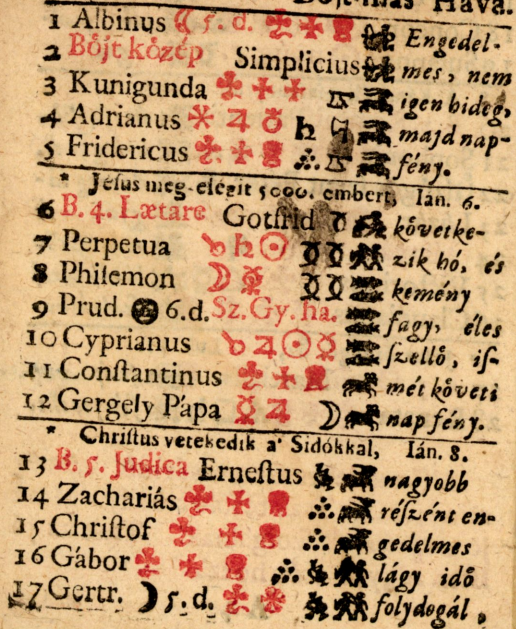 Böjt-más Hava.
1 Albinus ☾ 5. d.
Engedel-
2 Böjt kőzép Simplicius
mes, nem
3 Kunigunda
igen hideg,
4 Adrianus
majd nap-
5 Fridericus
fény.
* Jésus meg-elégit 5000. embert, Ian. 6.
6 B. 4. Lætare Gotfrid
kővetke-
7 Perpetua
zik hó, és
8 Philemon
kemény
9 Prud. 6. d. Sz. Gy. ha.
fagy, éles
10 Cyprianus
ſzellő, iſ-
11 Conſtantinus
mét kőveti
12 Gergely Pápa
nap fény.
* Chriſtus vetekedik a' Sidókkal, Ián. 8.
13 B. 5. Judica Erneſtus
nagyobb
14 Zachariás
réſzént en-
15 Chriſtof
gedelmes
16 Gábor
lágy idő
17 Gertr. ☽ 5. d.
folydogál,